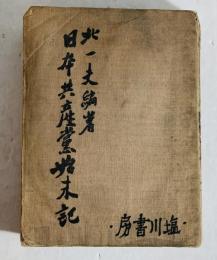 北一夫編著
日本共産黨始末記
・塩川書房・